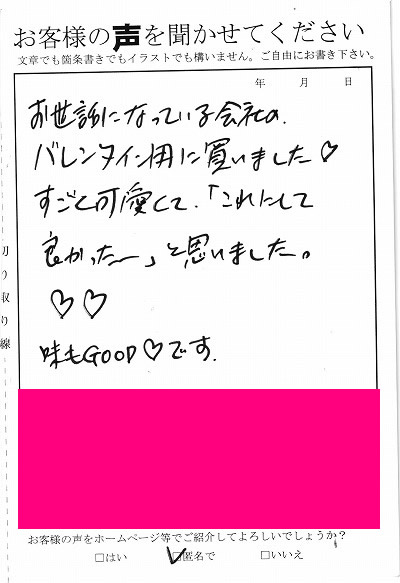 お客様の声を聞かせてください
文章でも箇条書きでもイラストでも構いません。ご自由にお書き下さい。
年 月 日
お世話になっている会社の、
バレンタイン用に買いました♡
すごく可愛くて、「これにして
良かったー」と思いました。
♡♡
味もGOOD♡です。
切り取り線
お客様の声をホームページ等でご紹介してよろしいでしょうか?
□はい ☑匿名で □いいえ